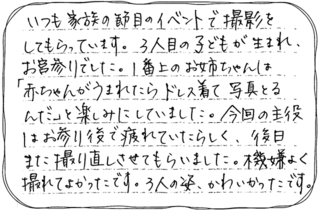 いつも家族の節目のイベントで撮影を
してもらっています。3人目の子どもが生まれ、
お宮参りでした。1番上のお姉ちゃんは
「赤ちゃんがうまれたらドレス着て写真とる
んだ」と楽しみにしていました。今回の主役
はお参り後で疲れていたらしく、後日
また撮り直しさせてもらいました。機嫌よく
撮れてよかったです。3人の姿、かわいかったです。